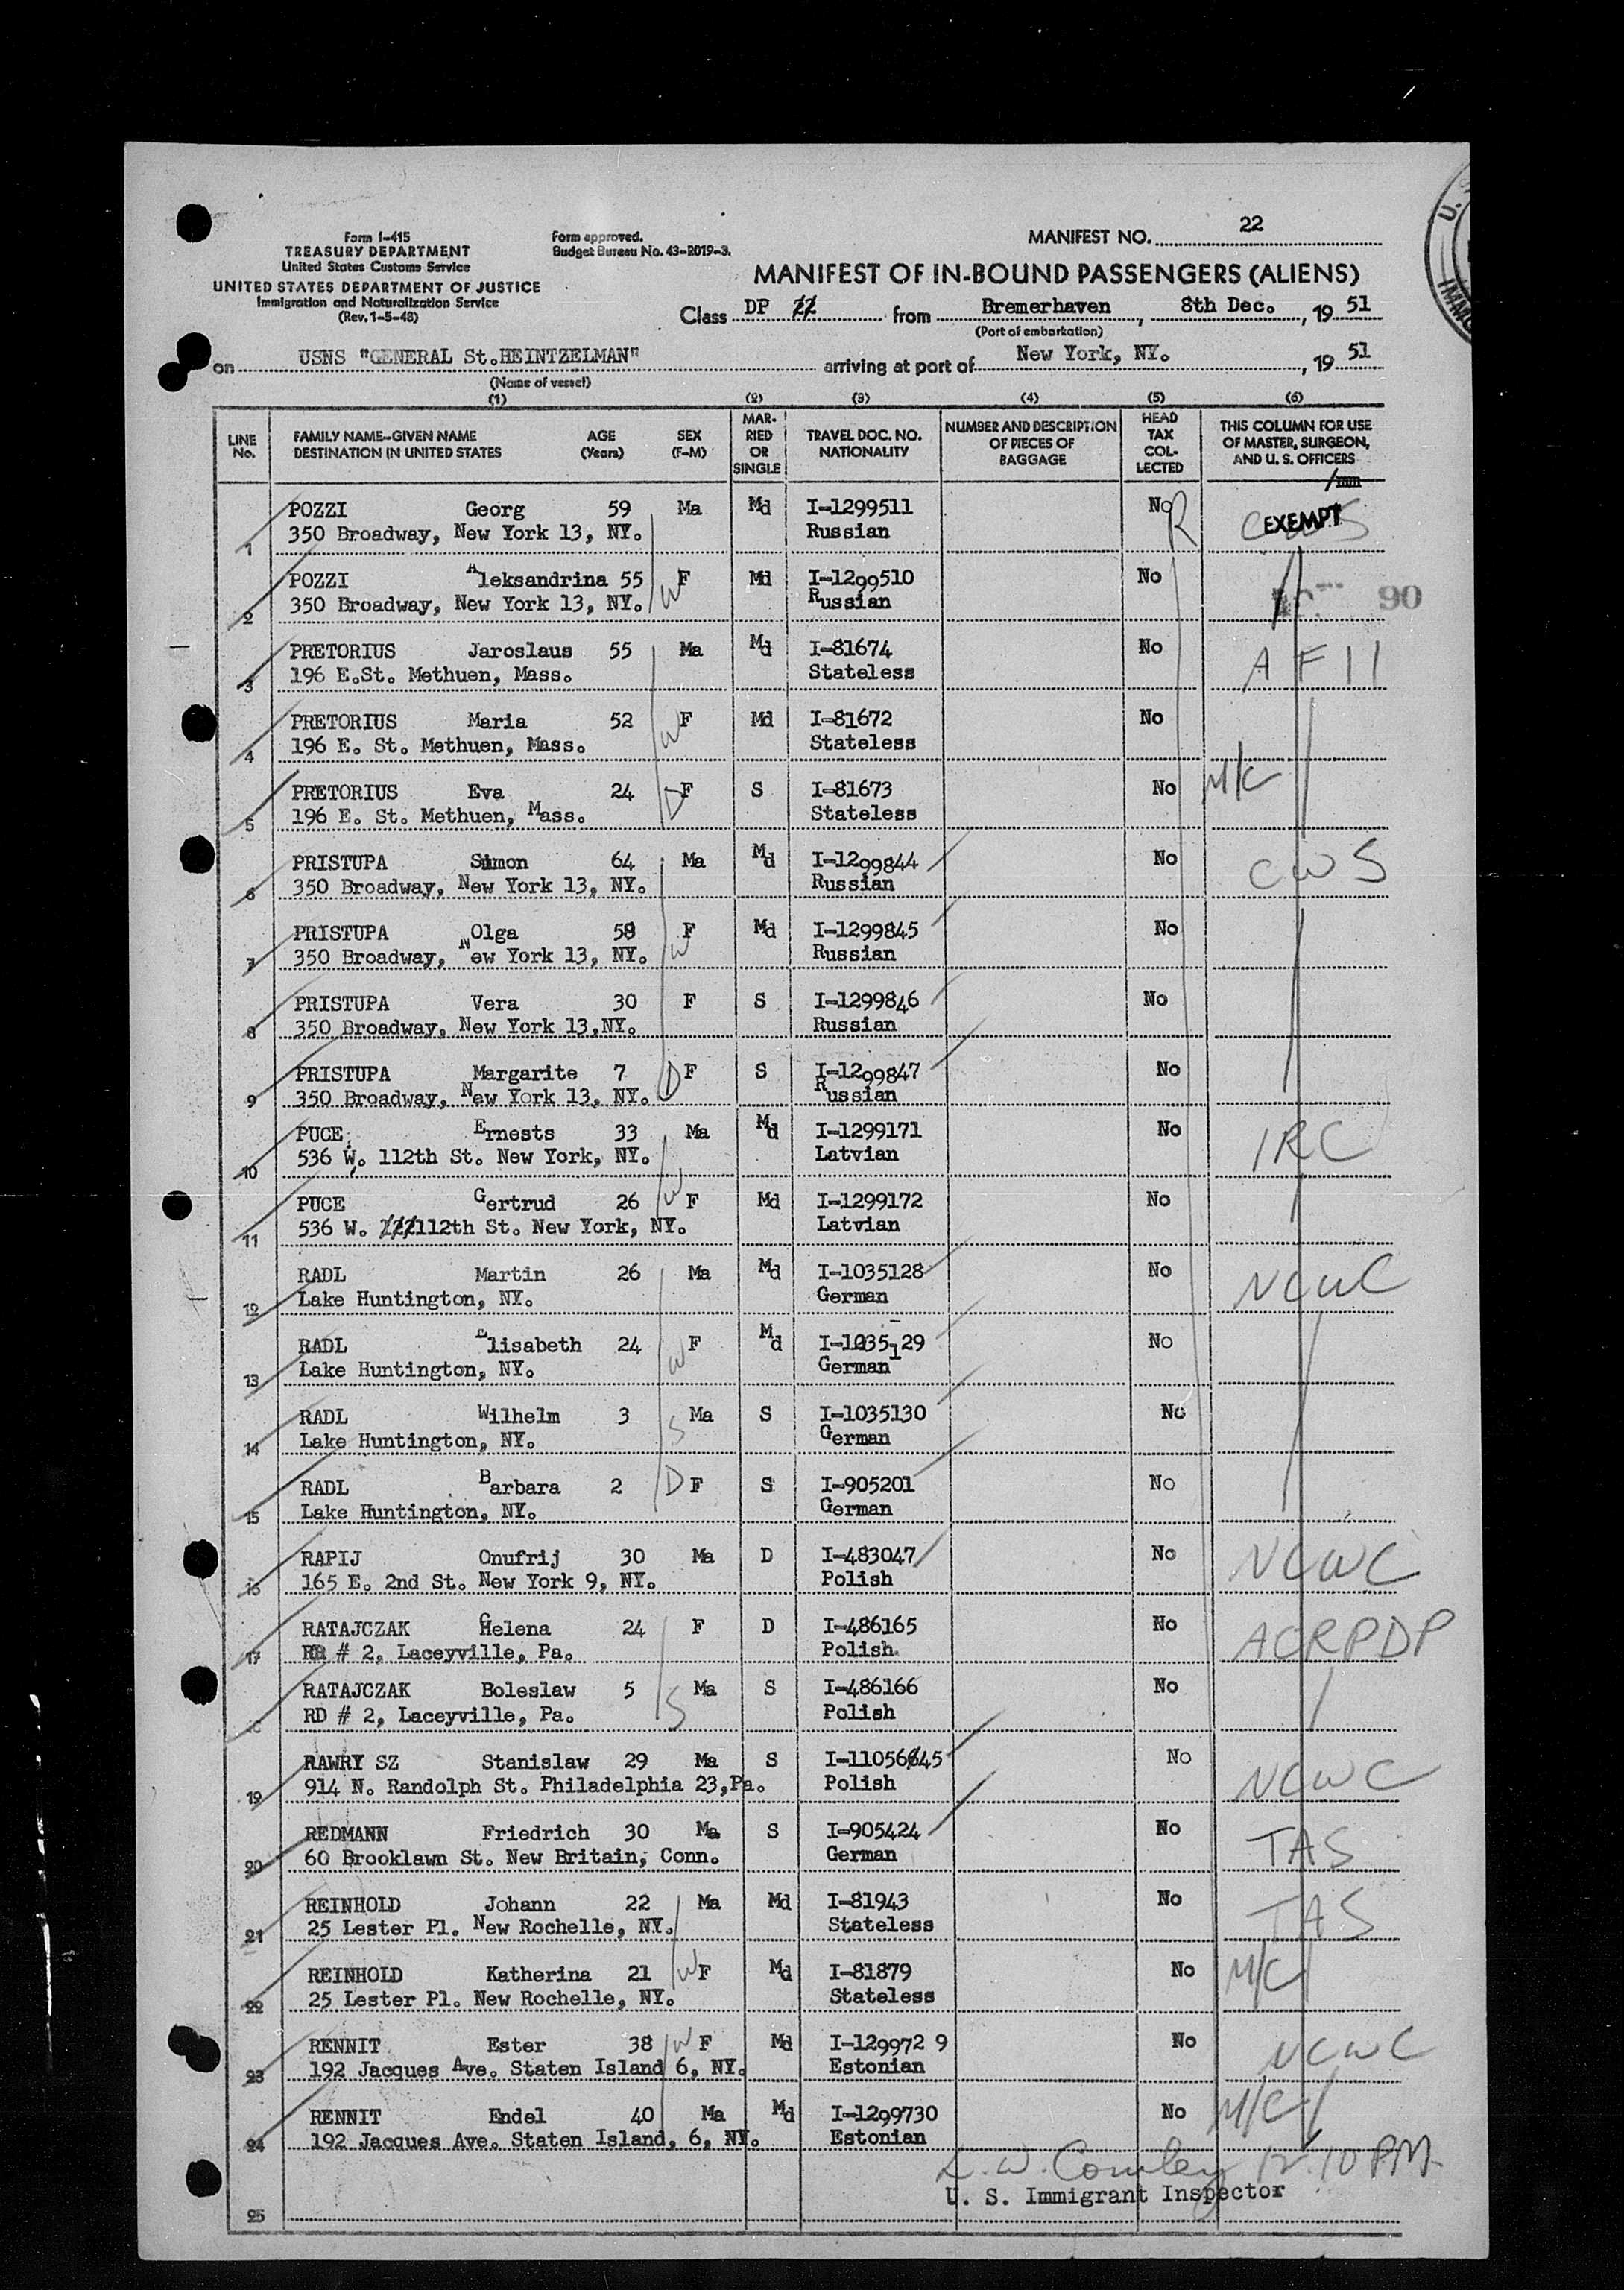 Form I-415
TREASURY DEPARTMENT
United States Customs Service
UNITED STATES DEPARTMENT OF JUSTICE
Immigration and Naturalization Service
(Rev. 1-5-48)
Form approved.
Budget Bureau No. 43-R019-3.
MANIFEST NO. 22
MANIFEST OF IN-BOUND PASSENGERS (ALIENS)
Class DP from Bremerhaven, 8th Dec., 19 51
(Port of embarkation)
on USNS "GENERAL St.HEINTZELMAN" arriving at port of New York, NY., 19 51
(Name of vessel)
(1) (2) (3) (4) (5) (6)
LINE No. FAMILY NAME-GIVEN NAME DESTINATION IN UNITED STATES AGE (Years) SEX (F-M) MARRIED OR SINGLE TRAVEL DOC. NO. NATIONALITY NUMBER AND DESCRIPTION OF PIECES OF BAGGAGE HEAD TAX COLLECTED THIS COLUMN FOR USE OF MASTER, SURGEON, AND U. S. OFFICERS
POZZI Georg 59 Ma Md I-1299511 No R CWS EXEMPT
1 350 Broadway, New York 13, NY. Russian
POZZI Aleksandrina 55 F Md I-1299510 No
2 350 Broadway, New York 13, NY. W Russian 90
PRETORIUS Jaroslaus 55 Ma Md I-81674 No AFII
3 196 E.St. Methuen, Mass. Stateless
PRETORIUS Maria 52 F Md I-81672 No
4 196 E. St. Methuen, Mass. W Stateless
PRETORIUS Eva 24 D F S I-81673 No M/C
5 196 E. St. Methuen, Mass. Stateless
PRISTUPA Simon 64 Ma Md I-1299844 No CWS
6 350 Broadway, New York 13, NY. Russian
PRISTUPA Olga 58 F Md I-1299845 No
7 350 Broadway, New York 13, NY. W Russian
PRISTUPA Vera 30 F S I-1299846 No
8 350 Broadway, New York 13,NY. Russian
PRISTUPA Margarite 7 D F S I-1299847 No
9 350 Broadway, New York 13, NY. Russian
PUCE Ernests 33 Ma Md I-1299171 No IRC
10 536 W. 112th St. New York, NY. Latvian
PUCE Gertrud 26 W F Md I-1299172 No
11 536 W. 112th St. New York, NY. Latvian
RADL Martin 26 Ma Md I-1035128 No NCWC
12 Lake Huntington, NY. German
RADL Elisabeth 24 F Md I-1035129 No
13 Lake Huntington, NY. W German
RADL Wilhelm 3 S Ma S I-1035130 No
14 Lake Huntington, NY. German
RADL Barbara 2 D F S I-905201 No
15 Lake Huntington, NY. German
RAPIJ Onufrij 30 Ma D I-483047 No NCWC
16 165 E. 2nd St. New York 9, NY. Polish
RATAJCZAK Helena 24 F D I-486165 No ACRPDP
17 RD # 2, Laceyville, Pa. Polish
RATAJCZAK Boleslaw 5 S Ma S I-486166 No
18 RD # 2, Laceyville, Pa. Polish
RAWRY SZ Stanislaw 29 Ma S I-11056645 No NCWC
19 914 N. Randolph St. Philadelphia 23,Pa. Polish
REDMANN Friedrich 30 Ma S I-905424 No TAS
20 60 Brooklawn St. New Britain, Conn. German
REINHOLD Johann 22 Ma Md I-81943 No TAS
21 25 Lester Pl. New Rochelle, NY. Stateless
REINHOLD Katherina 21 W F Md I-81879 No M/C
22 25 Lester Pl. New Rochelle, NY. Stateless
RENNIT Ester 38 W F Md I-129972 9 No NCWC
23 192 Jacques Ave. Staten Island 6, NY. Estonian
RENNIT Endel 40 Ma Md I-1299730 No M/C
24 192 Jacques Ave. Staten Island, 6, NY. Estonian
12.10 PM
U. S. Immigrant Inspector
25